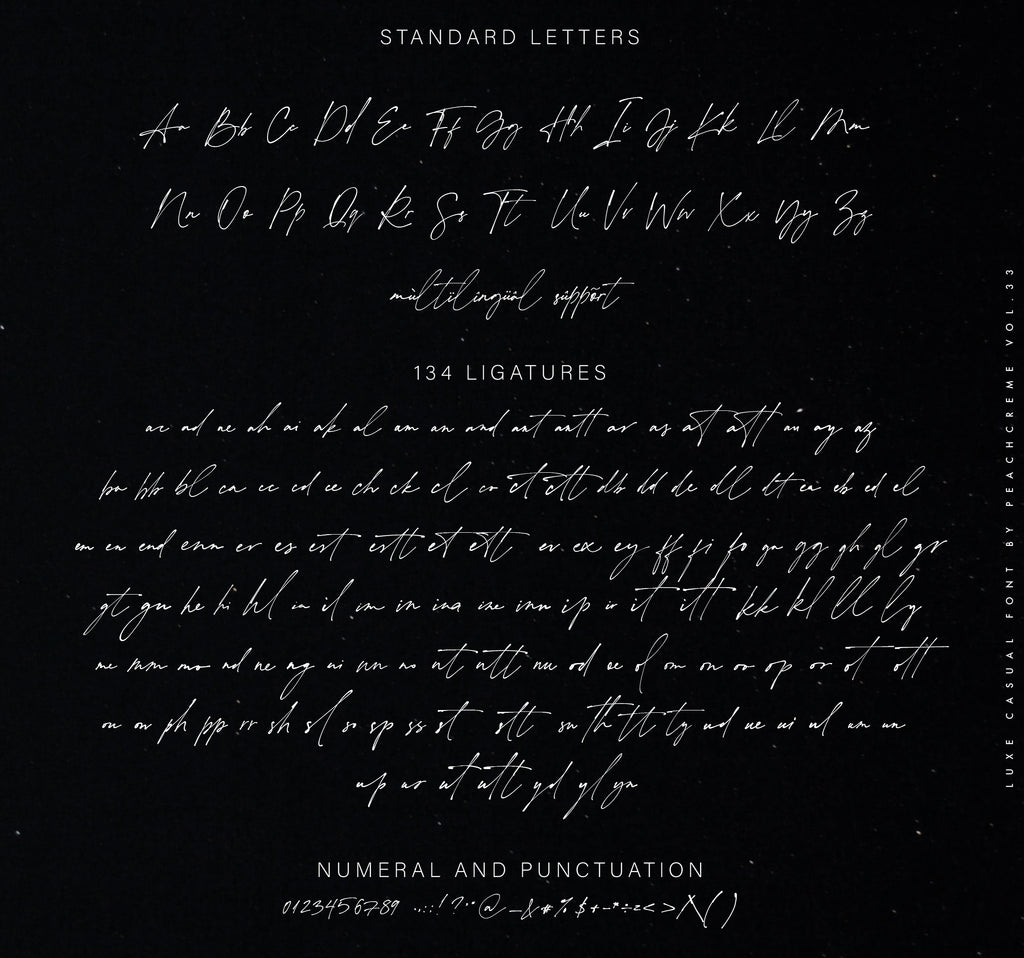 STANDARD LETTERS
Aa Bb Cc Dd Ee Ff Gg Hh Ii Jj Kk Ll Mm
Nn Oo Pp Qq Rr Ss Tt Uu Vv Ww Xx Yy Zz
mùltïlingüâl sûppõrt
134 LIGATURES
ac ad ae ah ai ak al am an and ant antt ar as at att au ay az
bb bl ca cc cd ce ch ck cl co ct ctt db dd de dl dt ea eb ed el
em en end enn er es est estt et ett ev ex ey ff fi fo ga gg gh gl gr
gt gu he hi hl ia il im in ina ine inn ip ir it itt kk kl ll ly
me mm mo nd ne ng ni nn no nt ntt nu od oe of om on oo op or ot ott
ou ow ph pp rr sh sl so sp ss st stt su th tt ty ud ue ui ul um un
up us ut utt yd yl yn
NUMERAL AND PUNCTUATION
0123456789 .,:;!?"@_&#%$+-*÷=<>/\()
LUXE CASUAL FONT BY PEACHCREME VOL.33